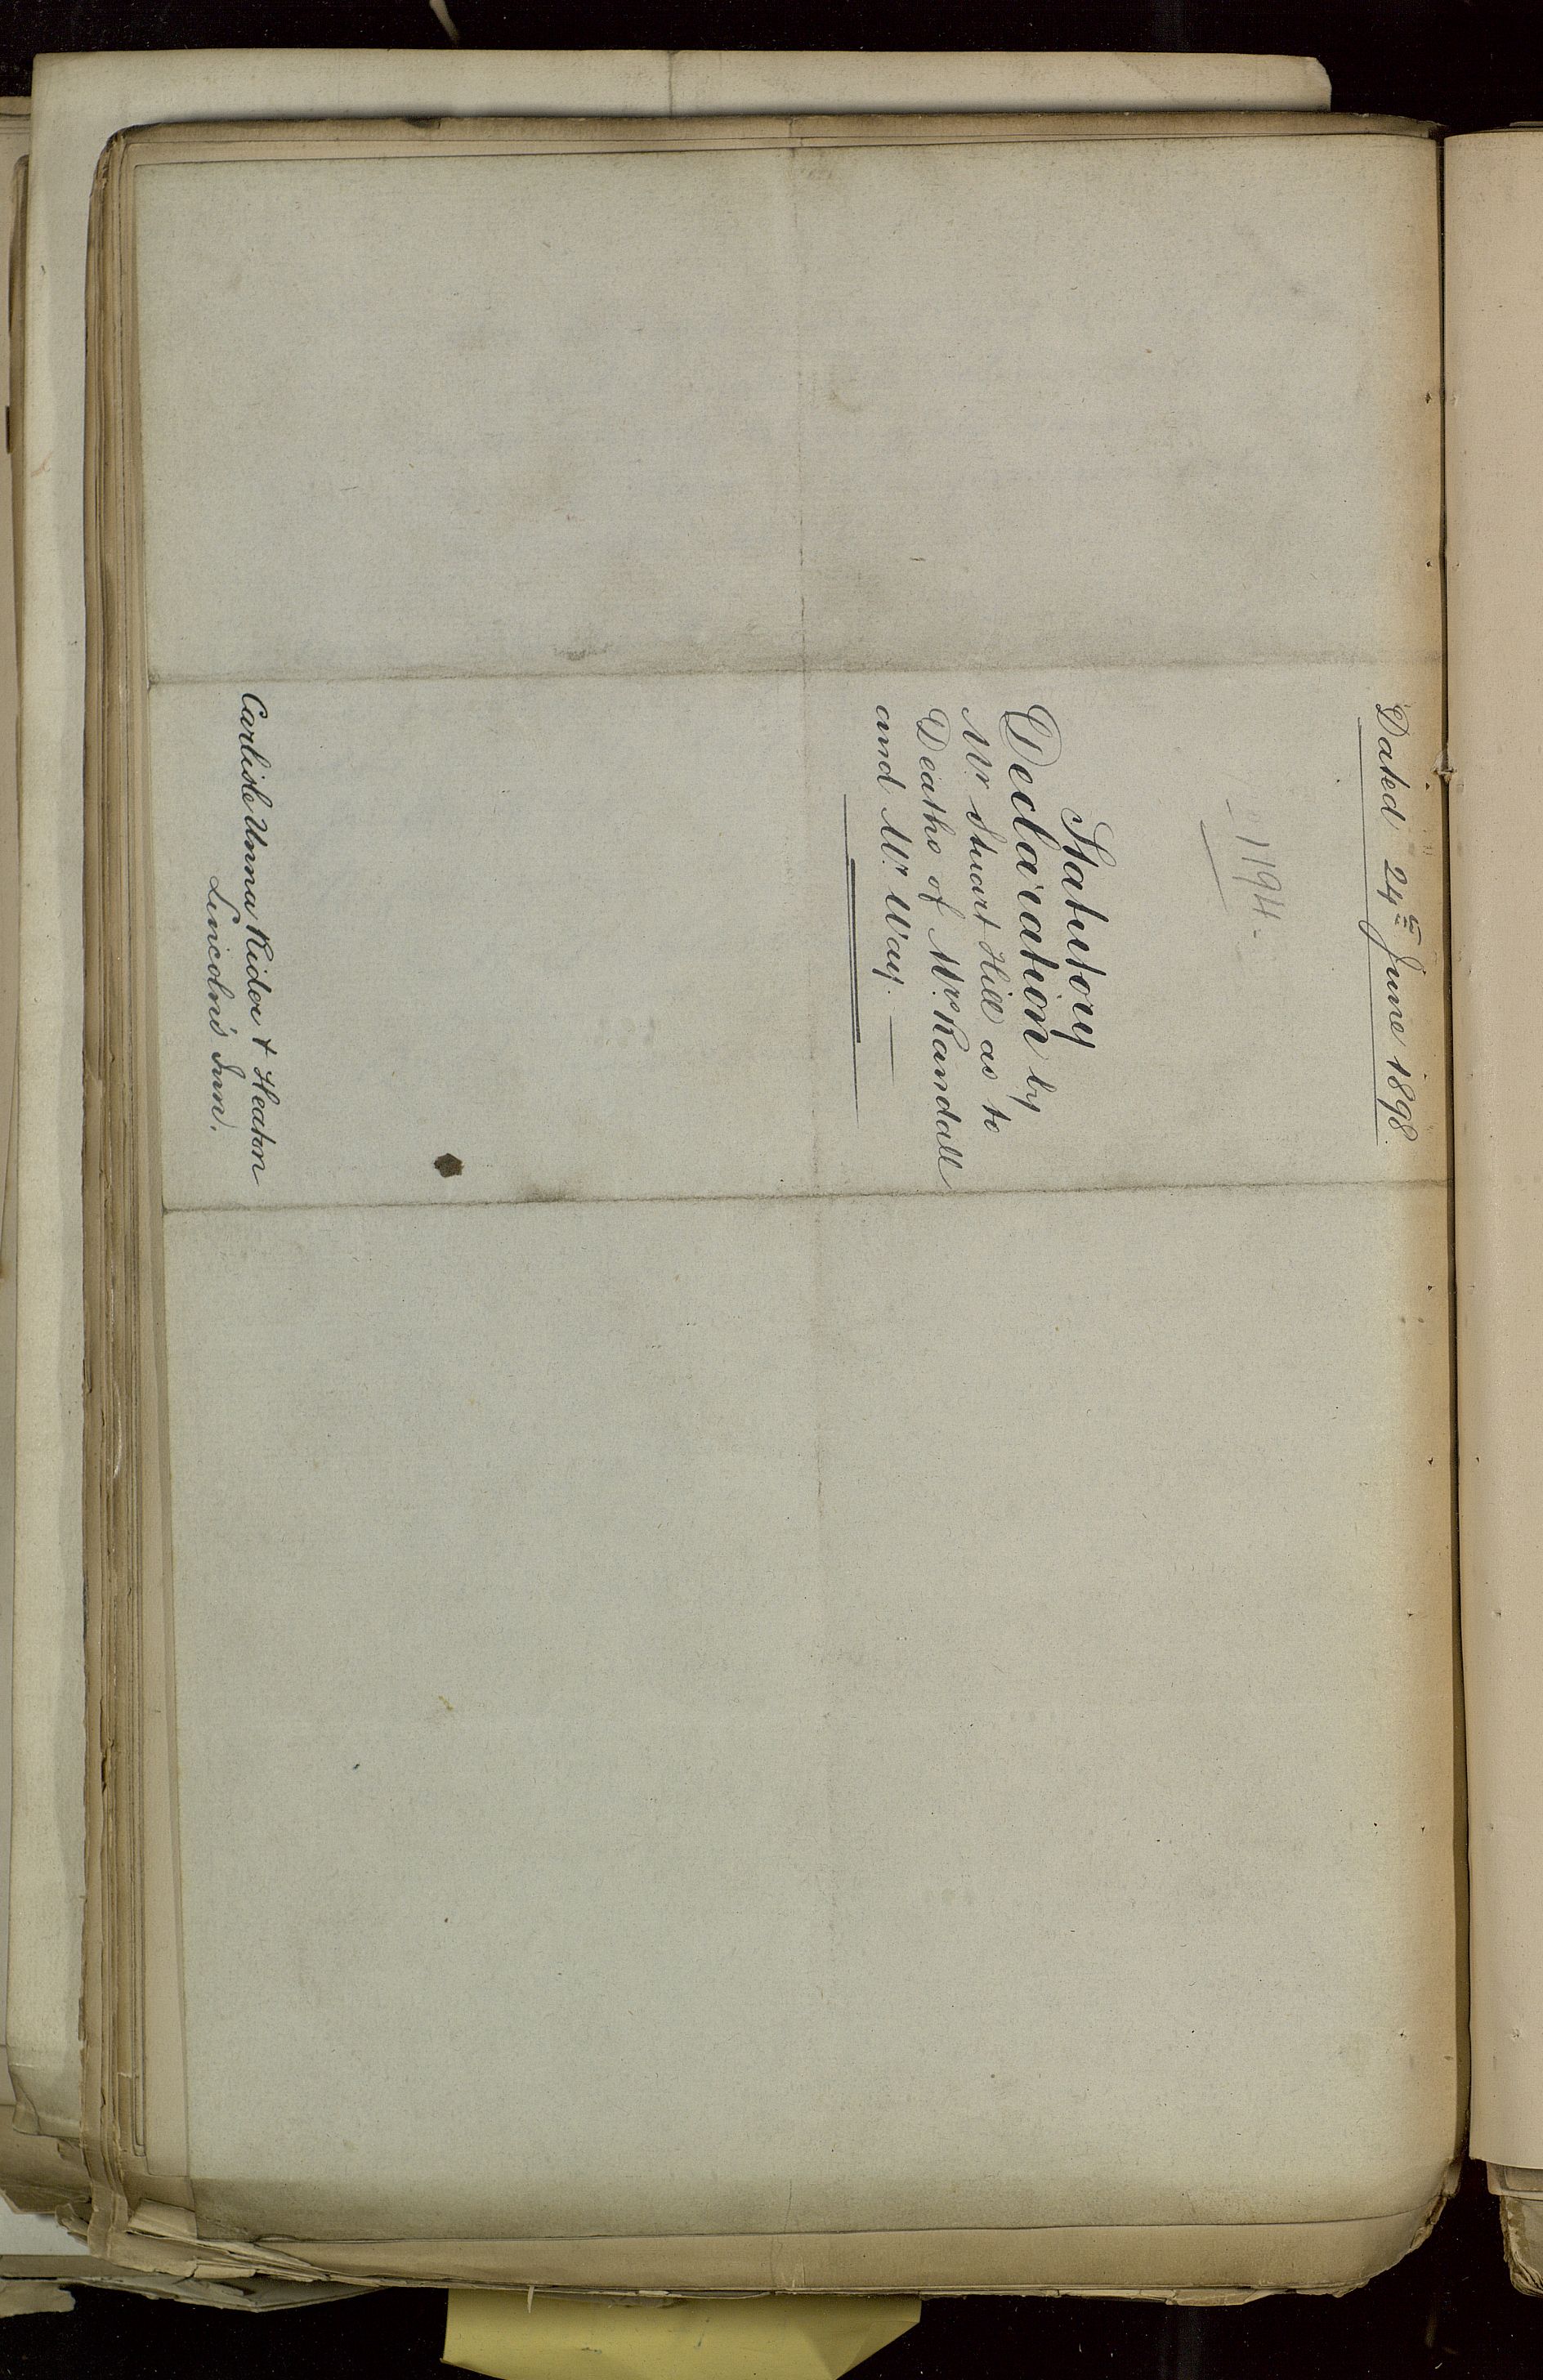 Dated 24th June 1898.
1194.
Statutory
Declaration by
Mr. Stuart Hill as to
Deaths of Mrs. Randall
and Mr. Way.
Carlisle Unna Rider & Heaton
Lincoln's Inn.